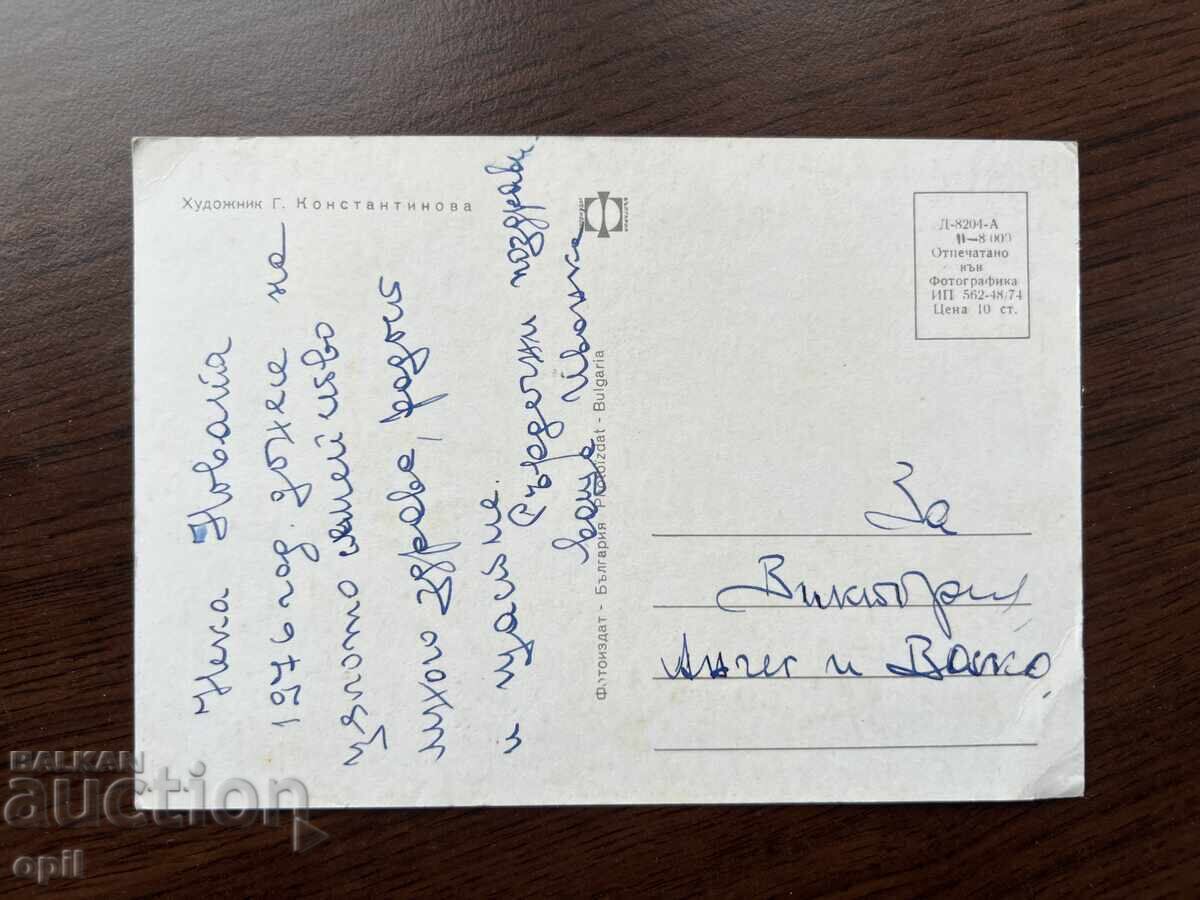 Художник Г. Константинова
Нека Новата
1976 год. донесе на
цялото семейство
много здраве, радост
и щастие.
Сърдечни поздрави
ваша Иванка
Фотоиздат - България - Photoizdat - Bulgaria
Д-8204-А
II-8 000
Отпечатано
във
Фотографика
ИП 562-48/74
Цена 10 ст.
За
Виктория
и Васко
BALKAN
auction
opil